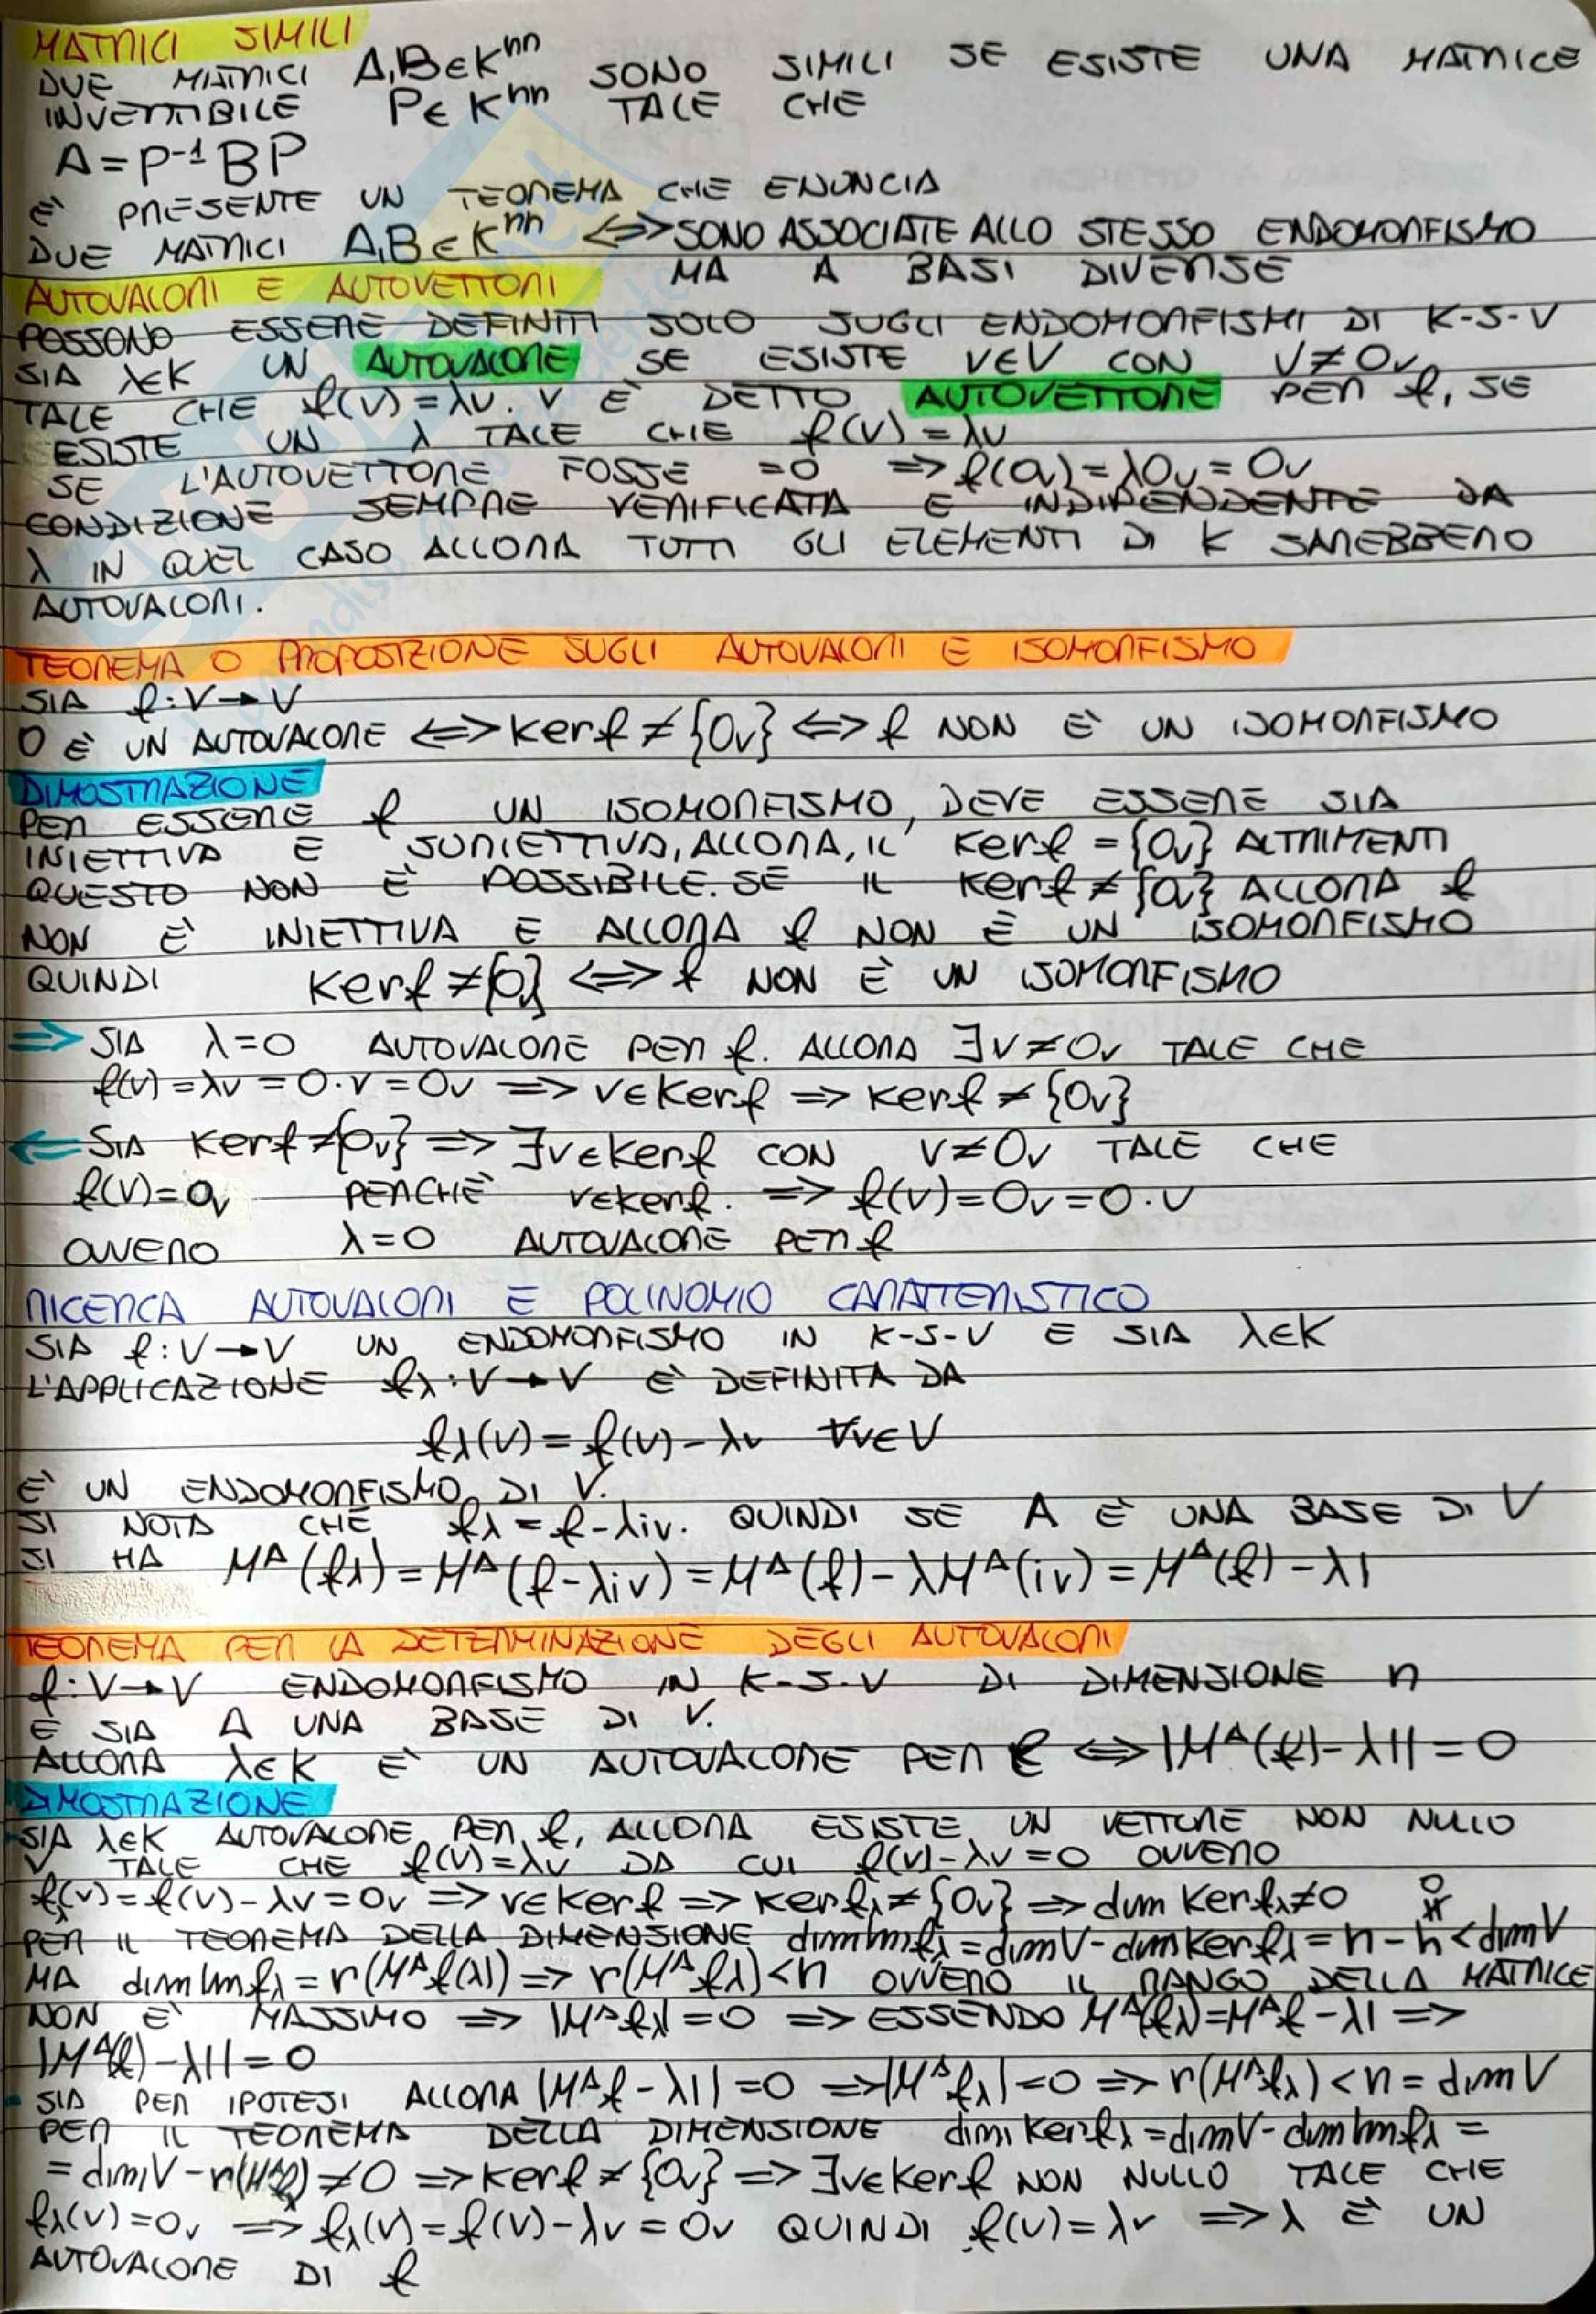 MATRICI SIMILI
DUE MATRICI A,B∈K^nn SONO SIMILI SE ESISTE UNA MATRICE
INVERTIBILE P∈K^nn TALE CHE
A=P⁻¹BP
E' PRESENTE UN TEOREMA CHE ENUNCIA
DUE MATRICI A,B∈K^nn <=> SONO ASSOCIATE ALLO STESSO ENDOMORFISMO
MA A BASI DIVERSE
AUTOVALORI E AUTOVETTORI
POSSONO ESSERE DEFINITI SOLO SUGLI ENDOMORFISMI DI K-S-V
SIA λ∈K UN AUTOVALORE SE ESISTE V∈V CON V≠0v
TALE CHE f(v)=λv. V E' DETTO AUTOVETTORE PER f, SE
ESISTE UN λ TALE CHE f(v)=λv
SE L'AUTOVETTORE FOSSE =0 => f(0v)=λ0v=0v
CONDIZIONE SEMPRE VERIFICATA E INDIPENDENTE DA
λ IN QUEL CASO ALLORA TUTTI GLI ELEMENTI DI K SAREBBERO
AUTOVALORI.
TEOREMA O PROPOSIZIONE SUGLI AUTOVALORI E ISOMORFISMO
SIA f:V→V
0 E' UN AUTOVALORE <=> Kerf≠{0v} <=> f NON E' UN ISOMORFISMO
DIMOSTRAZIONE
PER ESSERE f UN ISOMORFISMO, DEVE ESSERE SIA
INIETTIVA E SURIETTIVA, ALLORA, IL Kerf={0v} ALTRIMENTI
QUESTO NON E' POSSIBILE. SE IL Kerf≠{0v} ALLORA f
NON E' INIETTIVA E ALLORA f NON E' UN ISOMORFISMO
QUINDI Kerf≠{0} <=> f NON E' UN ISOMORFISMO
=> SIA λ=0 AUTOVALORE PER f. ALLORA ∃v≠0v TALE CHE
f(v)=λv=0·v=0v => v∈Kerf => Kerf≠{0v}
<= SIA Kerf≠{0v} => ∃v∈Kerf CON V≠0v TALE CHE
f(v)=0v PERCHE' v∈kerf. => f(v)=0v=0·v
OVVERO λ=0 AUTOVALORE PER f
RICERCA AUTOVALORI E POLINOMIO CARATTERISTICO
SIA f:V→V UN ENDOMORFISMO IN K-S-V E SIA λ∈K
L'APPLICAZIONE fλ:V→V E' DEFINITA DA
fλ(v)=f(v)-λv ∀v∈V
E' UN ENDOMORFISMO DI V.
SI NOTA CHE fλ=f-λiv. QUINDI SE A E' UNA BASE DI V
SI HA M^A(fλ)=M^A(f-λiv)=M^A(f)-λM^A(iv)=M^A(f)-λI
TEOREMA PER LA DETERMINAZIONE DEGLI AUTOVALORI
f:V→V ENDOMORFISMO IN K-S-V DI DIMENSIONE n
E SIA A UNA BASE DI V.
ALLORA λ∈K E' UN AUTOVALORE PER f <=> |M^A(f)-λI|=0
DIMOSTRAZIONE
-SIA λ∈K AUTOVALORE PER f, ALLORA ESISTE UN VETTORE NON NULLO
V, TALE CHE f(v)=λv DA CUI f(v)-λv=0 OVVERO
fλ(v)=f(v)-λv=0v => v∈Kerf => Kerfλ≠{0v} => dim Kerfλ≠0
PER IL TEOREMA DELLA DIMENSIONE dimImfλ=dimV-dimKerfλ=n-h<dimV
MA dimImfλ=r(M^Af(λ)) => r(M^A fλ)<n OVVERO IL RANGO DELLA MATRICE
NON E' MASSIMO => |M^A fλ|=0 => ESSENDO M^A(fλ)=M^Af-λI =>
|M^A(f)-λI|=0
- SIA PER IPOTESI ALLORA |M^Af-λI|=0 => |M^Afλ|=0 => r(M^Afλ)<n=dimV
PER IL TEOREMA DELLA DIMENSIONE dim Kerfλ=dimV-dimImfλ=
=dimV-r(M^Afλ)≠0 => Kerf≠{0v} => ∃v∈Kerf NON NULLO TALE CHE
fλ(v)=0v => fλ(v)=f(v)-λv=0v QUINDI f(v)=λv => λ E' UN
AUTOVALORE DI f